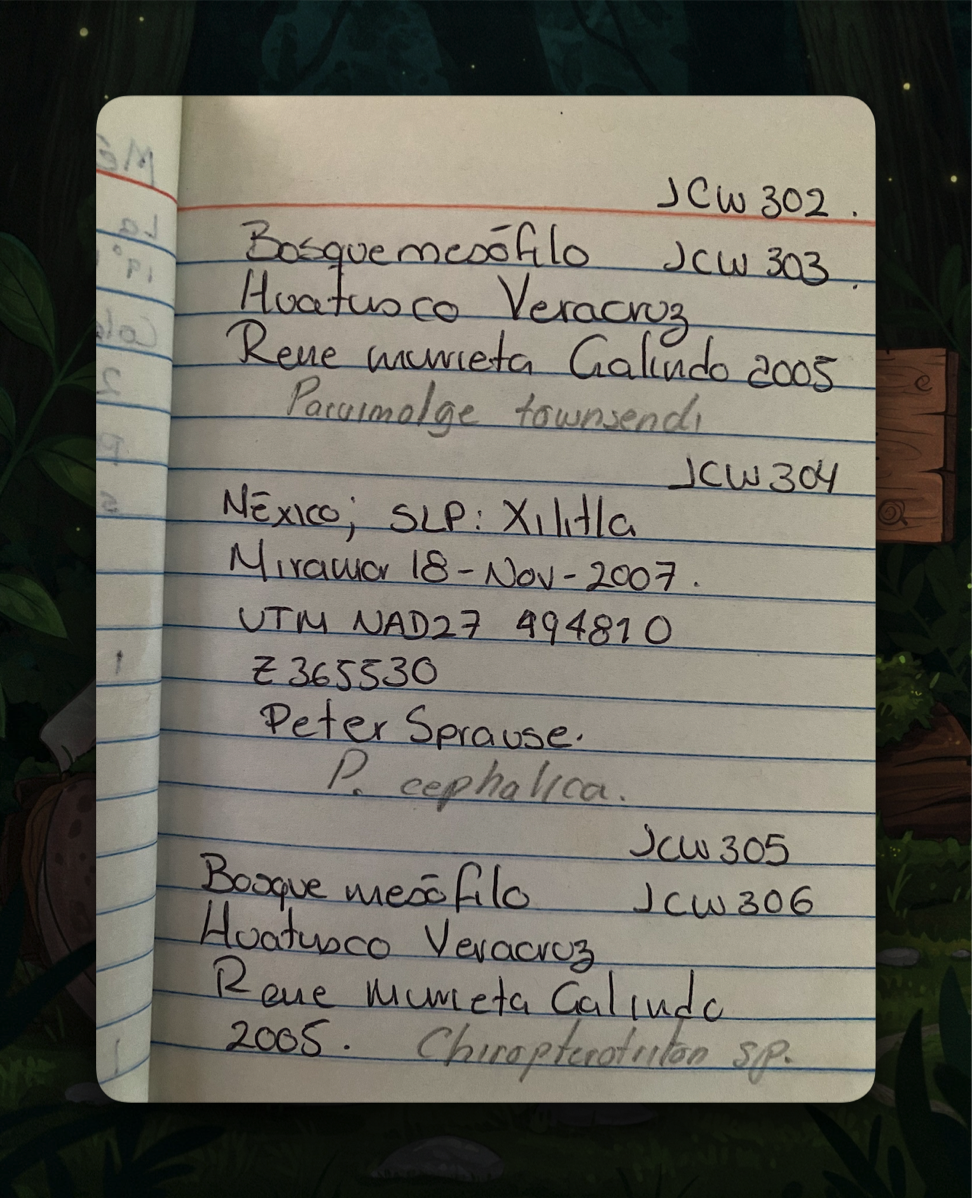 JCW 302.
Bosque mesófilo JCW 303.
Huatusco Veracruz
Rene Murrieta Galindo 2005
Parvimolge townsendi
JCW 304
México; SLP: Xilitla
Miramar 18-Nov-2007.
UTM NAD27 494810
Z 365530
Peter Sprouse.
P. cephalica.
JCW 305
Bosque mesófilo JCW 306
Huatusco Veracruz
Rene Murrieta Galindo
2005. Chiropterotriton sp.